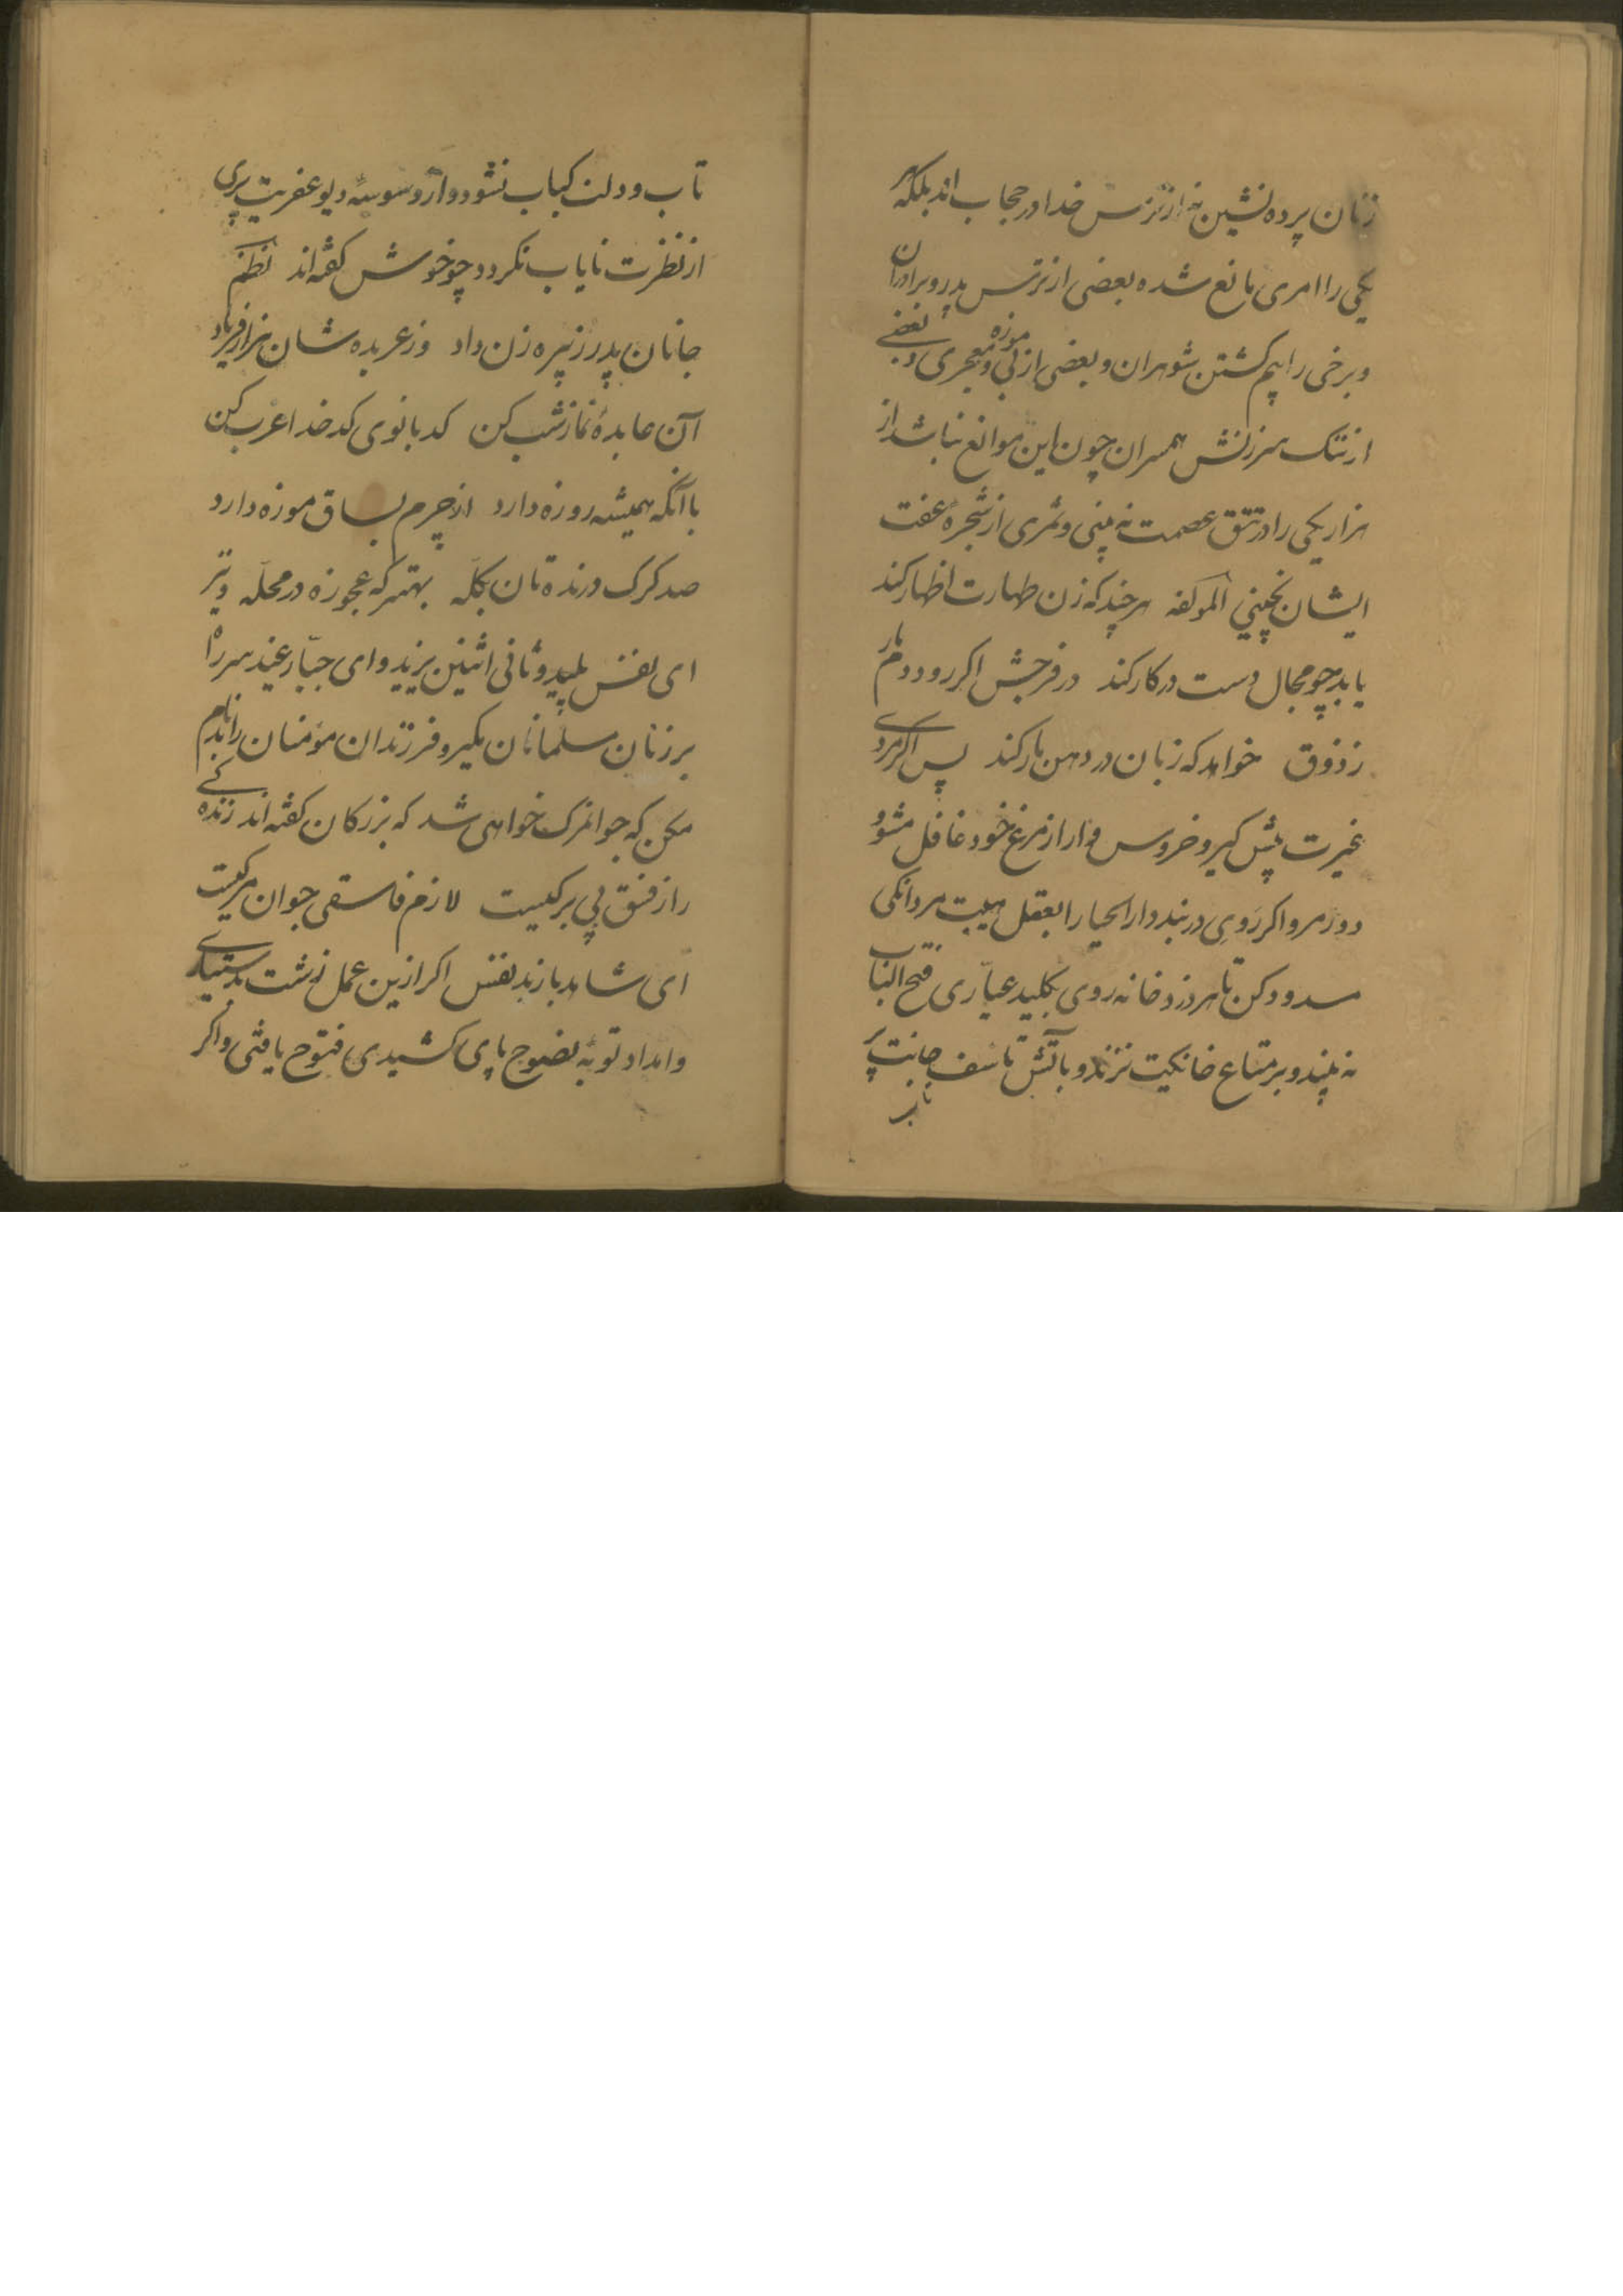 زنان پرده نشین نه از ترس خدا در حجاب اند بلکه هر
یکی را امری مانع شده بعضی از ترس پدر و برادران
و برخی را بیم کشتن شوهران و بعضی از بی موزه و معجری و بعضی
از ننک سرزنش همسران چون این موانع نباشد از
هزار یکی را در تتق عصمت نه بینی و ثمری از شجرهٔ عفت
ایشان نچینی المؤلفه هر چند که زن طهارت اظهار کند
یابد چو مجال دست در کار کند در فرجش اکر رود دم مار
ز ذوق خواهد که زبان در دهن مار کند پس اکر مردی
غیرت پیش کیر و خروس وار از مرغ خود غافل مشو و
دور مرو اکر روی در بند دار الحیا را بقفل هیبت مردانکی
مسدود کن تا هر دزد خانه روی بکلید عیاری فتح الباب
نه بیند و بر متاع خانکیت نزند و بآتش تاسف جانت پر
تاب
تاب و دلت کباب نشود و از وسوسهٔ دیو عفریت پری
از نظرت نایاب نکردد چو خوش کفته اند نظم
جانان پدر ز پیره زن داد وز عربده شان هزار فریاد
آن عابدهٔ نماز شب کن کدبانوی کدخدا عزب کن
با آنکه همیشه روزه دارد از چرم بساق موزه دارد
صد کرک درنده تان بکله بهتر که عجوزه در محله وتر
ای نفس پلید و ثانی اثنین یزید و ای جبار عنید سر راه
بر زنان مسلمانان مکیر و فرزندان مؤمنان را بدنام
مکن که جوانمرک خواهی شد که بزرکان کفته اند زندکی
را از فسق بی برکیست لازم فاسقی جوان مرکیست
ای شاهد باز بد نفس اکر ازین عمل زشت بدستیاری
و امداد توبهٔ نصوح پای کشیدی فتوح یافتی و اکر